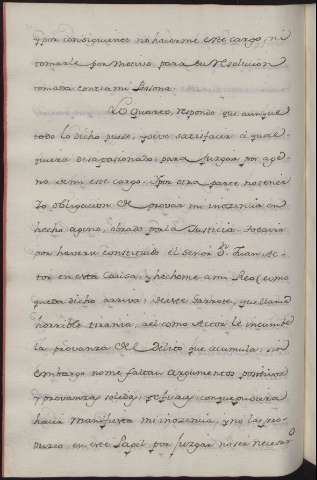 y por consiguiente no hacerme este cargo, ni
tomarle por motivo, para su resolucion
tomada contra mi Persona.
Lo Quarto, respondo que aunque
todo lo dicho puede, y deve satisfacer a qual-
quiera desapasionado, para Juzgar por age-
no de mi este cargo. Y por otra parte no tener
Yo obligacion de provar mi inosencia en
hecho ageno, obrado por la Justicia: tocava
por haverse constituido el Señor Dn. Juan Ac-
tor en esta Causa, y hechome a mi Reo, como
queda dicho arriva: de este Garrote, que llama
horrible tirania, asi como Actor le incumbe
la provanza del Delito que acumula; sin
embargo no me faltan argumentos positivos
y provanzas solidas, y eficaz conque pudiera
hacer manifiesta mi inosencia, y no las pro-
dusco en este Papel por Juzgar no ser necesar